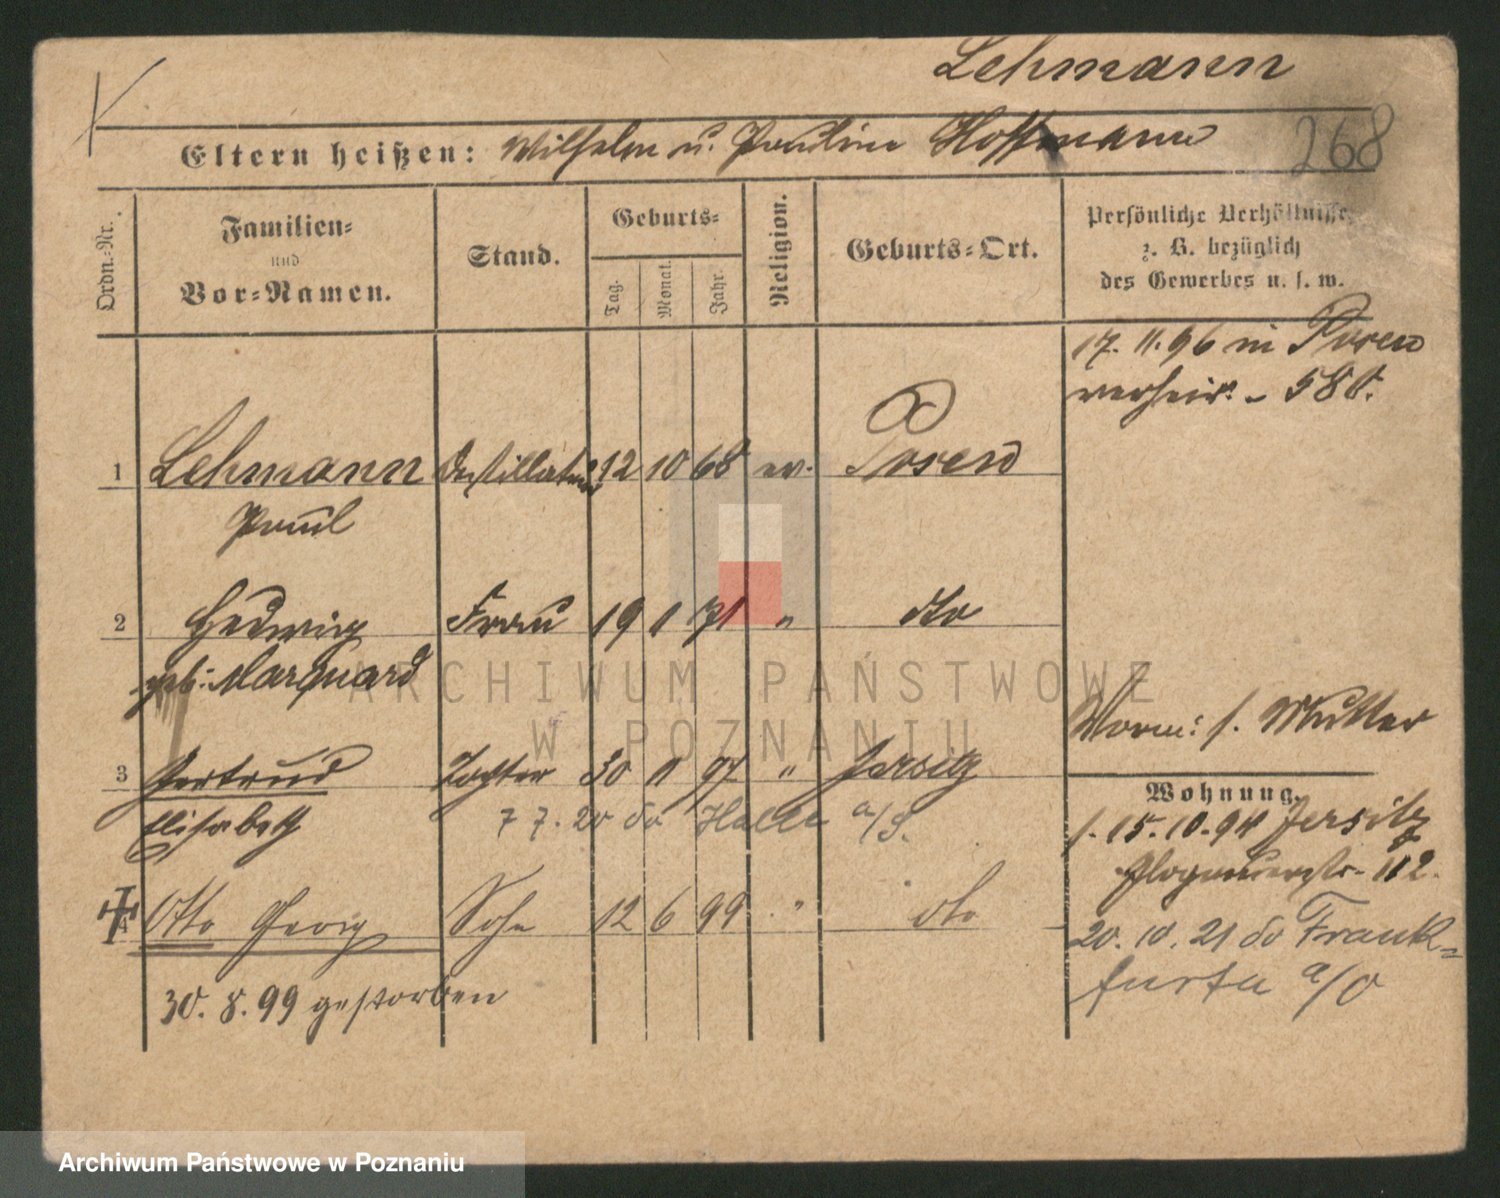 Lehmann
Eltern heißen: Wilhelm u. Pauline Hoffmann
268
Ordn.-Nr.
Familien- und Vor-Namen.
Stand.
Geburts-
Tag.
Monat.
Jahr.
Religion.
Geburts-Ort.
Persönliche Verhältnisse,
z. B. bezüglich
des Gewerbes u. s. w.
17. 11. 96 in Posen
verheir. - 580.
1 Lehmann Destillateur 12 10 68 ev. Posen
Paul
2 Hedwig Frau 19 1 71 " dto
geb: Marquard
Vorm: s. Mutter
3 Gertrud Tochter 30 11 97 " Jersitz
Elisabeth 7 7. 20 do Halle a/S.
Wohnung.
s. 15. 10. 94 Jersitz
Glogauerstr. 112.
4 Otto Georg Sohn 12 6 99 " dto
20. 10. 21 do Frank-
furta a/O
30. 8. 99 gestorben
ARCHIWUM PAŃSTWOWE
W POZNANIU
Archiwum Państwowe w Poznaniu